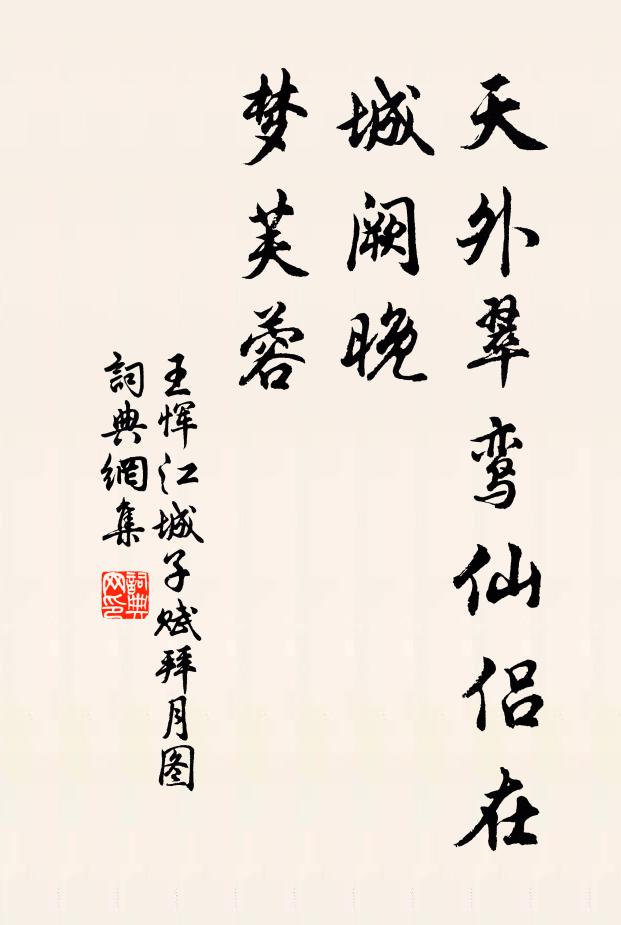 天外翠鸾仙侣在
城阙晚
梦芙蓉
王恽江城子赋拜月图
詞典網集
詞典网印